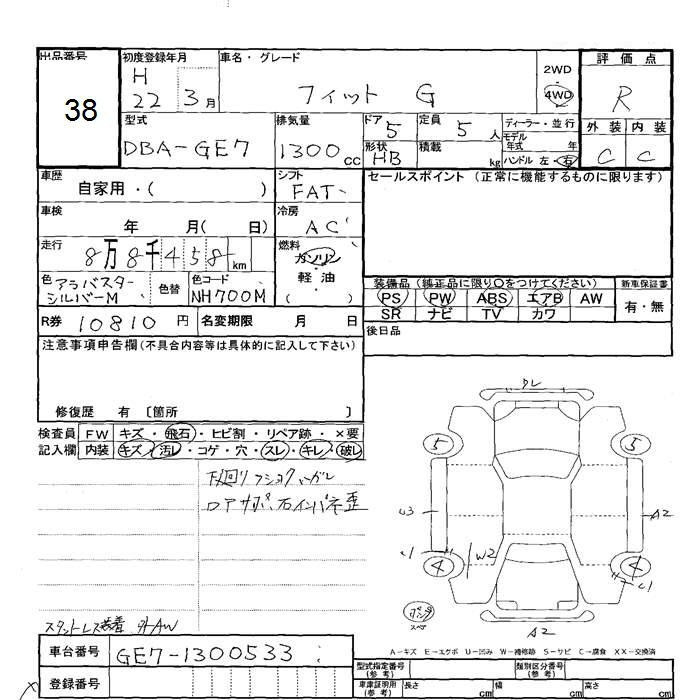 出品番号
38
初度登録年月
H
22 3月
車名・グレード
フィット G
2WD
4WD
評価点
R
外装 内装
C C
型式
DBA-GE7
排気量
1300cc
ドア 5
形状 HB
定員 5人
積載 kg
ディーラー・並行
モデル年式 年
ハンドル 左・右
車歴
自家用・( )
シフト
FAT
セールスポイント (正常に機能するものに限ります)
車検
年 月( 日)
冷房
AC
走行
8万8千458km
燃料
ガソリン
軽油
( )
色 アラバスター
シルバーM
色替
色コード
NH700M
装備品 (純正品に限り○をつけてください)
PS PW ABS エアB AW
SR ナビ TV カワ
新車保証書
有・無
R券 10810円
名変期限 月 日
後日品
注意事項申告欄(不具合内容等は具体的に記入して下さい)
修復歴 有 〔箇所 〕
検査員
記入欄
FW キズ・飛石・ヒビ割・リペア跡・×要
内装 キズ・汚レ・コゲ・穴・スレ・キレ・破レ
下廻り
スタットレス装着 外AW
ロアサポ、右インパネ歪
5 5
U3
A2
W2
4 4
A2
A-キズ E-エクボ U-凹み W-補修跡 S-サビ C-腐食 XX-交換済
車台番号
GE7-1300533
登録番号
型式指定番号
(参考)
類別区分番号
(参考)
車庫証明用
(参考)
長さ cm
幅 cm
高さ cm